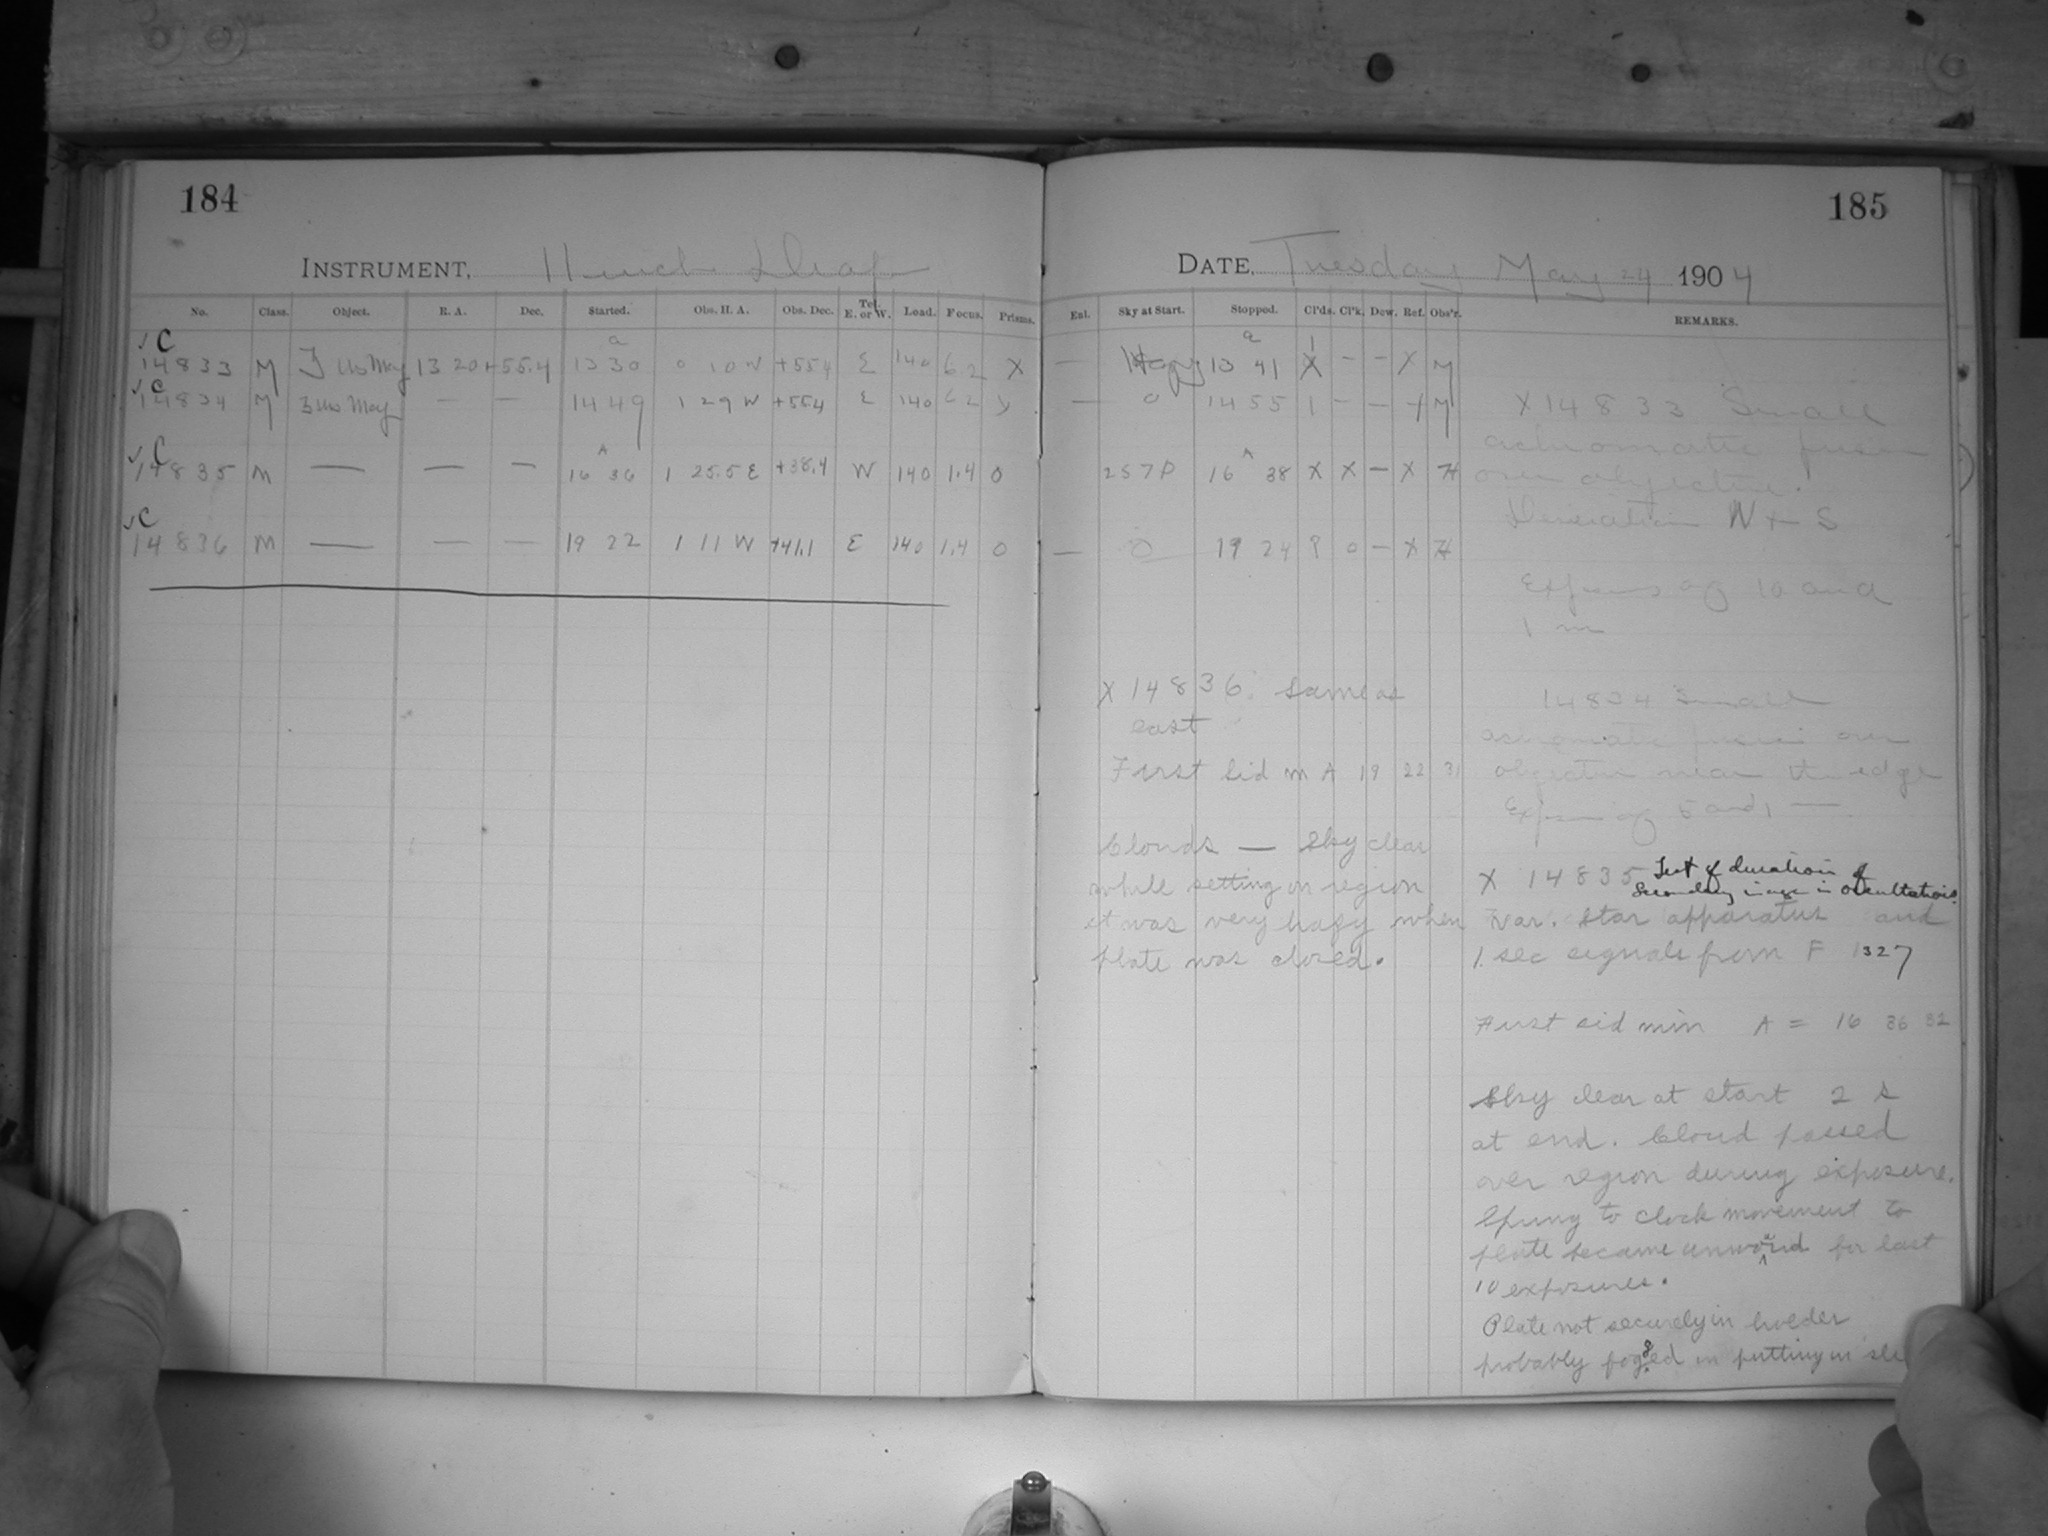 184
INSTRUMENT, 11 inch Draper
No. Class. Object. R. A. Dec. Started. Obs. H. A. Obs. Dec. Tel. E. or W. Load. Focus. Prisms.
√ C
14833 M ζ Urs May 13 20 +55.4 13 30 0 10 W +55.4 E 140 6.2 X
√ C
14834 M ζ Urs May — — 14 49 1 29 W +55.4 E 140 6.2 X
√ C A
14835 M — — — 16 36 1 25.5 E +38.4 W 140 1.4 0
√ C
14836 M — — — 19 22 1 11 W +41.1 E 140 1.4 0
185
DATE, Tuesday May 24 1904
Enl. Sky at Start. Stopped. Cl'ds. Cl'k. Dew. Ref. Obs'r. REMARKS.
— Hazy 13 41 X — — X M
— 0 14 55 1 — — X M
2S7P 16 38 X X — X H
— 0 19 24 ? 0 — X H
X 14836 Same as
last
First Sid m A 19 22 31
Clouds — Sky clear
while setting on region
it was very hazy when
plate was closed.
X 14833 Small
achromatic prism
over objective.
Deviation N + S
Exposures of 10 and
1 m
14834 Small
achromatic prism over
objective near the edge
Exposures of 5 and 1 —
X 14835 Test of duration of
Secondary image in Occultations.
Var. Star apparatus and
1 sec signals from F 1327
First sid min A = 16 36 32
Sky clear at start 2 S
at end. Cloud passed
over region during exposure.
Spring to clock movement to
plate became unwound for last
10 exposures.
Plate not securely in holder
probably fogged in putting in